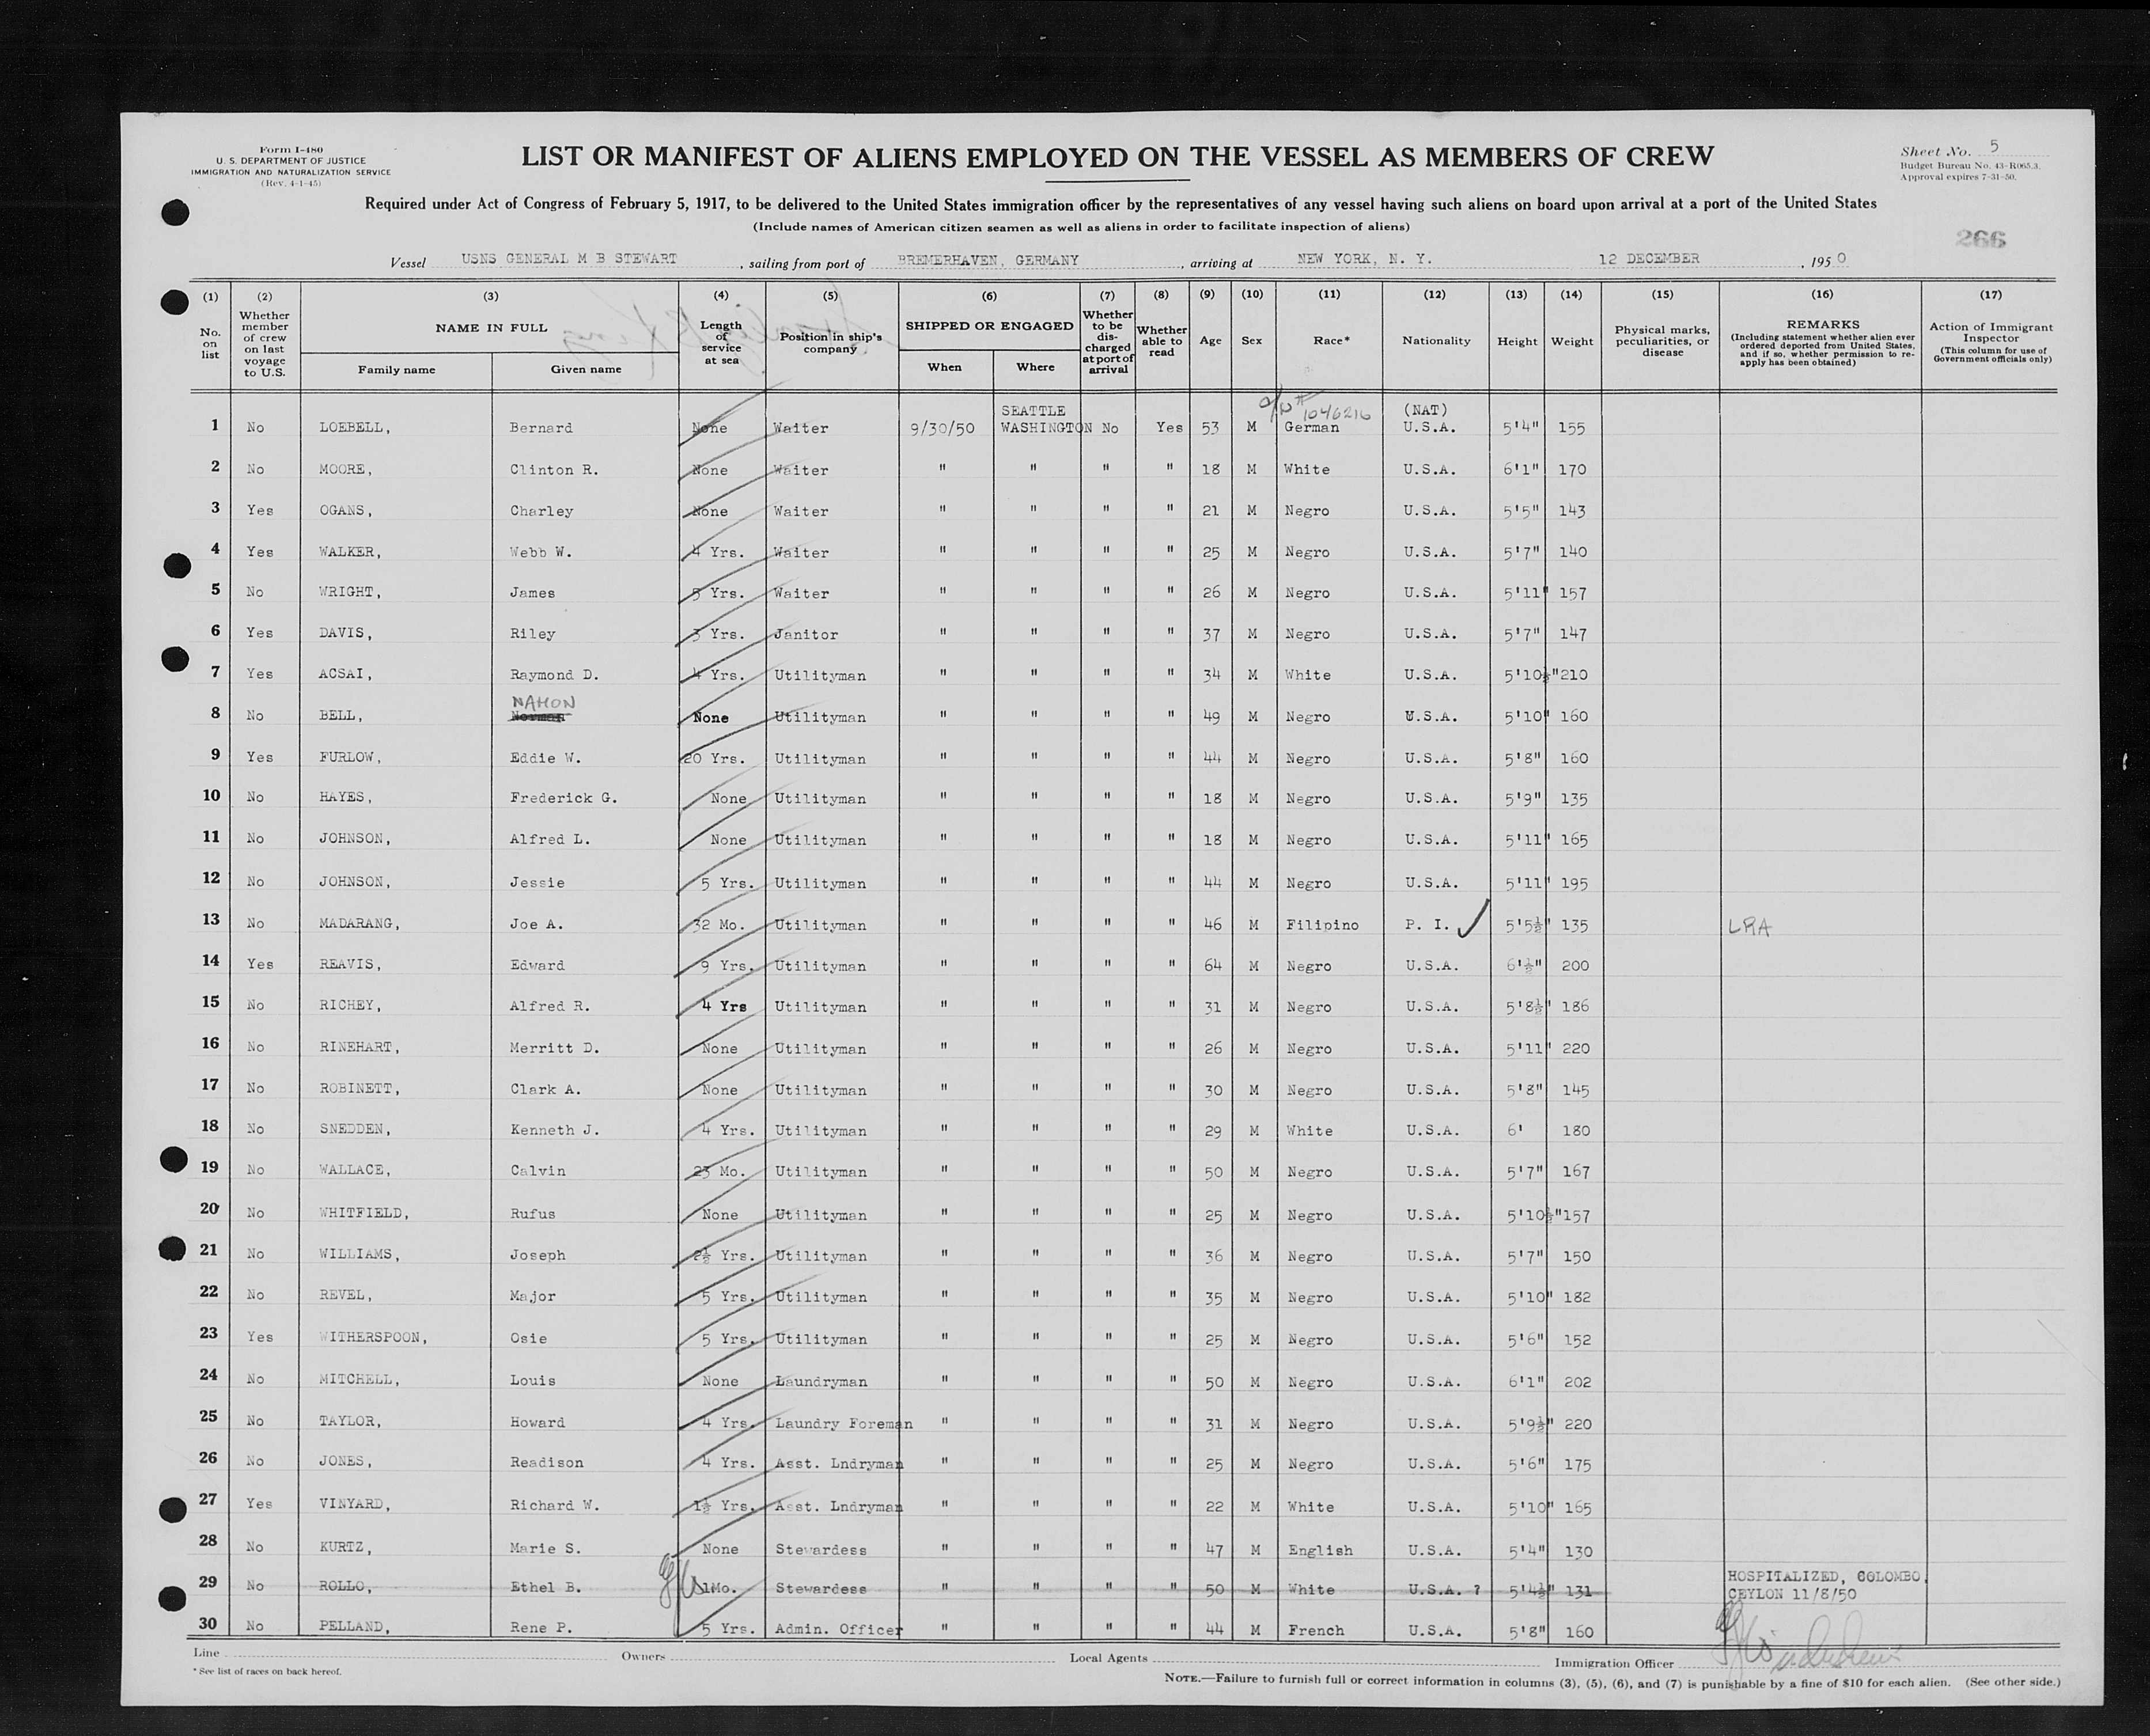 Form I-480
U. S. DEPARTMENT OF JUSTICE
IMMIGRATION AND NATURALIZATION SERVICE
(Rev. 4-1-45)
LIST OR MANIFEST OF ALIENS EMPLOYED ON THE VESSEL AS MEMBERS OF CREW
Sheet No. 5
Budget Bureau No. 43-R065.3.
Approval expires 7-31-50.
Required under Act of Congress of February 5, 1917, to be delivered to the United States immigration officer by the representatives of any vessel having such aliens on board upon arrival at a port of the United States
(Include names of American citizen seamen as well as aliens in order to facilitate inspection of aliens)
266
Vessel USNS GENERAL M B STEWART, sailing from port of BREMERHAVEN, GERMANY, arriving at NEW YORK, N. Y. 12 DECEMBER, 1950
(1) (2) (3) (4) (5) (6) (7) (8) (9) (10) (11) (12) (13) (14) (15) (16) (17)
No. on list
Whether member of crew on last voyage to U.S.
NAME IN FULL
Family name
Given name
Length of service at sea
Position in ship's company
SHIPPED OR ENGAGED
When
Where
Whether to be discharged at port of arrival
Whether able to read
Age
Sex
Race*
Nationality
Height
Weight
Physical marks, peculiarities, or disease
REMARKS
(Including statement whether alien ever ordered deported from United States, and if so, whether permission to reapply has been obtained)
Action of Immigrant Inspector
(This column for use of Government officials only)
1 No LOEBELL, Bernard None Waiter 9/30/50 SEATTLE WASHINGTON No Yes 53 M 1046216 German (NAT) U.S.A. 5'4" 155
2 No MOORE, Clinton R. None Waiter " " " " 18 M White U.S.A. 6'1" 170
3 Yes OGANS, Charley None Waiter " " " " 21 M Negro U.S.A. 5'5" 143
4 Yes WALKER, Webb W. 4 Yrs. Waiter " " " " 25 M Negro U.S.A. 5'7" 140
5 No WRIGHT, James 5 Yrs. Waiter " " " " 26 M Negro U.S.A. 5'11" 157
6 Yes DAVIS, Riley 3 Yrs. Janitor " " " " 37 M Negro U.S.A. 5'7" 147
7 Yes ACSAI, Raymond D. 4 Yrs. Utilityman " " " " 34 M White U.S.A. 5'10½" 210
8 No BELL, NAHON Norman None Utilityman " " " " 49 M Negro U.S.A. 5'10" 160
9 Yes FURLOW, Eddie W. 20 Yrs. Utilityman " " " " 44 M Negro U.S.A. 5'8" 160
10 No HAYES, Frederick G. None Utilityman " " " " 18 M Negro U.S.A. 5'9" 135
11 No JOHNSON, Alfred L. None Utilityman " " " " 18 M Negro U.S.A. 5'11" 165
12 No JOHNSON, Jessie 5 Yrs. Utilityman " " " " 44 M Negro U.S.A. 5'11" 195
13 No MADARANG, Joe A. 32 Mo. Utilityman " " " " 46 M Filipino P. I. ✓ 5'5½" 135 LRA
14 Yes REAVIS, Edward 9 Yrs. Utilityman " " " " 64 M Negro U.S.A. 6'½" 200
15 No RICHEY, Alfred R. 4 Yrs Utilityman " " " " 31 M Negro U.S.A. 5'8½" 186
16 No RINEHART, Merritt D. None Utilityman " " " " 26 M Negro U.S.A. 5'11" 220
17 No ROBINETT, Clark A. None Utilityman " " " " 30 M Negro U.S.A. 5'8" 145
18 No SNEDDEN, Kenneth J. 4 Yrs. Utilityman " " " " 29 M White U.S.A. 6' 180
19 No WALLACE, Calvin 23 Mo. Utilityman " " " " 50 M Negro U.S.A. 5'7" 167
20 No WHITFIELD, Rufus None Utilityman " " " " 25 M Negro U.S.A. 5'10½" 157
21 No WILLIAMS, Joseph 2½ Yrs. Utilityman " " " " 36 M Negro U.S.A. 5'7" 150
22 No REVEL, Major 5 Yrs. Utilityman " " " " 35 M Negro U.S.A. 5'10" 182
23 Yes WITHERSPOON, Osie 5 Yrs. Utilityman " " " " 25 M Negro U.S.A. 5'6" 152
24 No MITCHELL, Louis None Laundryman " " " " 50 M Negro U.S.A. 6'1" 202
25 No TAYLOR, Howard 4 Yrs. Laundry Foreman " " " " 31 M Negro U.S.A. 5'9½" 220
26 No JONES, Readison 4 Yrs. Asst. Lndryman " " " " 25 M Negro U.S.A. 5'6" 175
27 Yes VINYARD, Richard W. 1½ Yrs. Asst. Lndryman " " " " 22 M White U.S.A. 5'10" 165
28 No KURTZ, Marie S. None Stewardess " " " " 47 M English U.S.A. 5'4" 130
29 No ROLLO, Ethel B. 1Mo. Stewardess " " " " 50 M White U.S.A. ? 5'4½" 131 HOSPITALIZED, COLOMBO, CEYLON 11/8/50
30 No PELLAND, Rene P. 5 Yrs. Admin. Officer " " " " 44 M French U.S.A. 5'8" 160
Line Owners Local Agents Immigration Officer
* See list of races on back hereof.
NOTE.—Failure to furnish full or correct information in columns (3), (5), (6), and (7) is punishable by a fine of $10 for each alien. (See other side.)